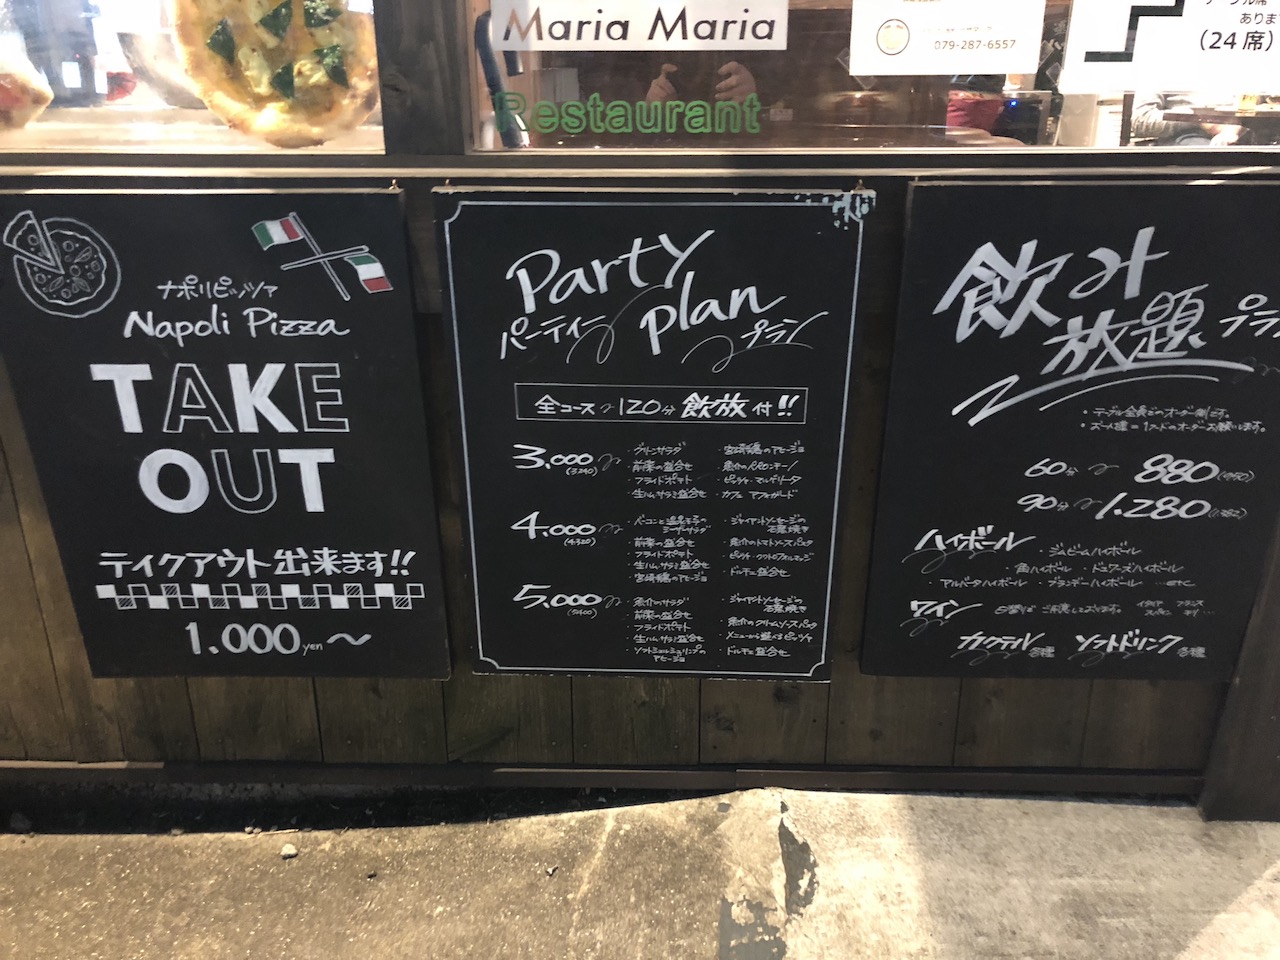 Maria Maria
Restaurant
079-287-6557
あります
(24席)
ナポリピッツァ
Napoli Pizza
TAKE
OUT
テイクアウト出来ます!!
1.000yen〜
Party
plan
パーティー
プラン
全コース〜120分飲放付!!
3,000
(3240)
・グリーンサラダ
・前菜の盛合せ
・フライドポテト
・生ハム、サラミ盛合せ
・宮崎鶏のアヒージョ
・魚介のペペロンチーノ
・ピッツァ・マルゲリータ
・カフェ アフォガード
4,000
(4320)
・前菜の盛合せ
・フライドポテト
・生ハム、サラミ盛合せ
・宮崎鶏のアヒージョ
・ジャイアントソーセージの
石窯焼き
・魚介のトマトソースパスタ
・ドルチェ盛合せ
5,000
(5400)
・魚介のサラダ
・前菜の盛合せ
・フライドポテト
・生ハム、サラミ盛合せ
・ソフトシェルシュリンプの
アヒージョ
・ジャイアントソーセージの
石窯焼き
・魚介のクリームソースパスタ
・メニューから選べるピッツァ
・ドルチェ盛合せ
飲み
放題
プラ
・テーブル全員でのオーダー制です。
60分〜 880(950)
90分〜 1,280(1382)
ハイボール
・ジムビームハイボール
・角ハイボール ・デュワーズハイボール
・アルバータハイボール ・ブランデーハイボール …etc
ワイン
日替りでご用意しております。
イタリア フランス
スペイン チリ…
カクテル各種 ソフトドリンク各種